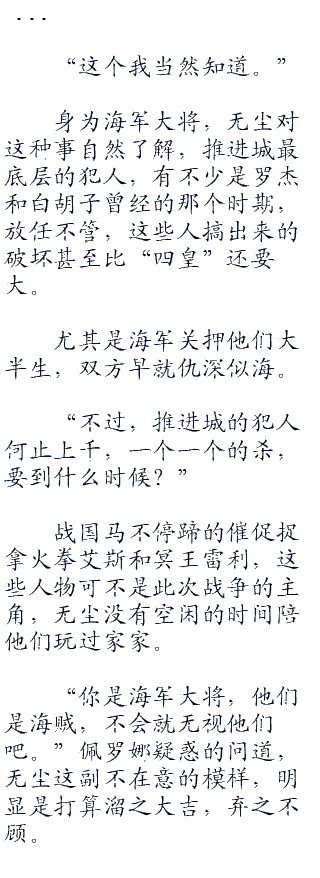 ...
“这个我当然知道。”
身为海军大将，无尘对
这种事自然了解，推进城最
底层的犯人，有不少是罗杰
和白胡子曾经的那个时期，
放任不管，这些人搞出来的
破坏甚至比“四皇”还要
大。
尤其是海军关押他们大
半生，双方早就仇深似海。
“不过，推进城的犯人
何止上千，一个一个的杀，
要到什么时候？”
战国马不停蹄的催促捉
拿火拳艾斯和冥王雷利，这
些人物可不是此次战争的主
角，无尘没有空闲的时间陪
他们玩过家家。
“你是海军大将，他们
是海贼，不会就无视他们
吧。”佩罗娜疑惑的问道，
无尘这副不在意的模样，明
显是打算溜之大吉，弃之不
顾。